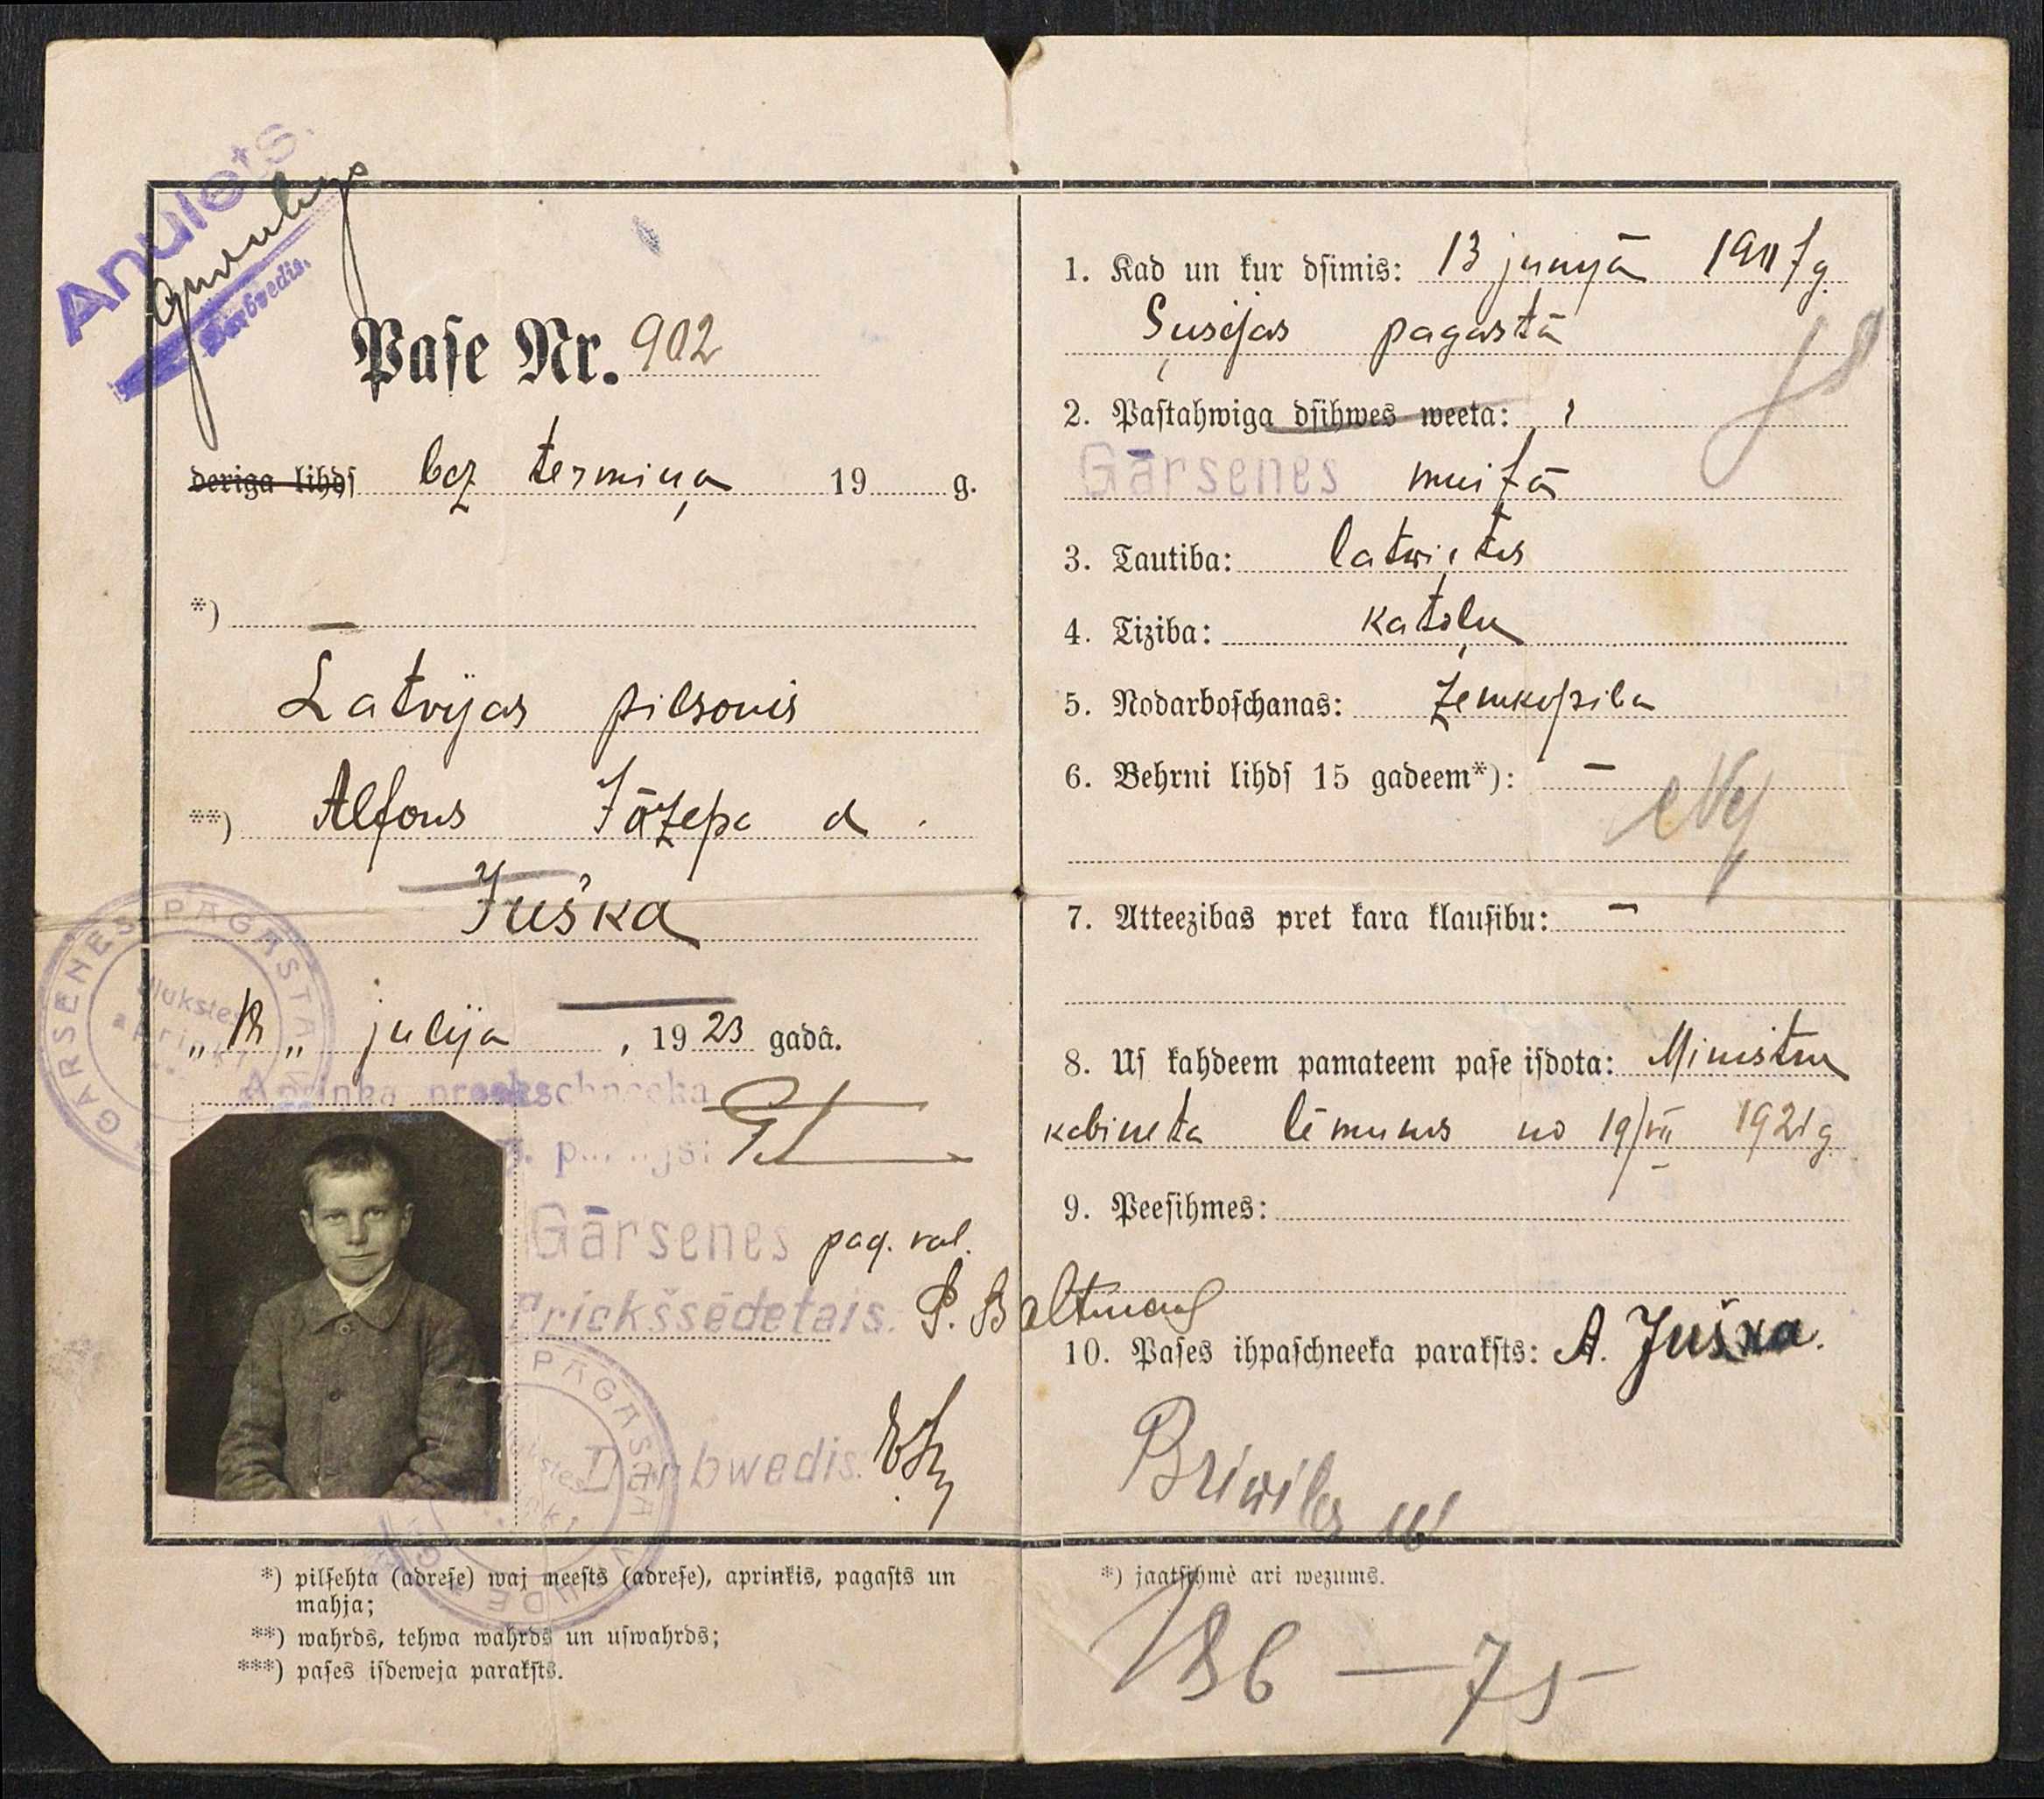 Anulets.
Darbvedis.
Paſe Nr. 902
deriga lihdſ bez termiņa 19 g.
*) —
Latvijas pilsonis
**) Alfons Jāzepa d.
Juška
GĀRSENES PAGASTA
Ilukstes
apriņķī
„ 12 „ julija , 1923 gadâ.
Apriņķa preekschneeka
Gārsenes pag. val.
Priekšsēdetais. P. Baltman
Darbwedis.
*) pilſehta (adreſe) waj meeſts (adreſe), aprinkis, pagaſts un
mahja;
**) wahrds, tehwa wahrds un uſwahrds;
***) paſes iſdeweja parakſts.
1. Kad un kur dſimis: 13 junijā 1907 g.
Susejas pagastā
2. Paſtahwiga dſihwes weeta:
Gārsenes muižā
3. Tautiba: latwietis
4. Tiziba: katoļu
5. Nodarboſchanas: Zemkopiba
6. Behrni lihdſ 15 gadeem*): —
7. Atteezibas pret kara klauſibu: —
8. Uſ kahdeem pamateem paſe iſdota: Ministru
kabineta lēmums no 19/VII 1921 g.
9. Peeſihmes:
10. Paſes ihpaſchneeka parakſts: A. Juška.
*) jaatſihmê ari wezums.
186 — 75 —